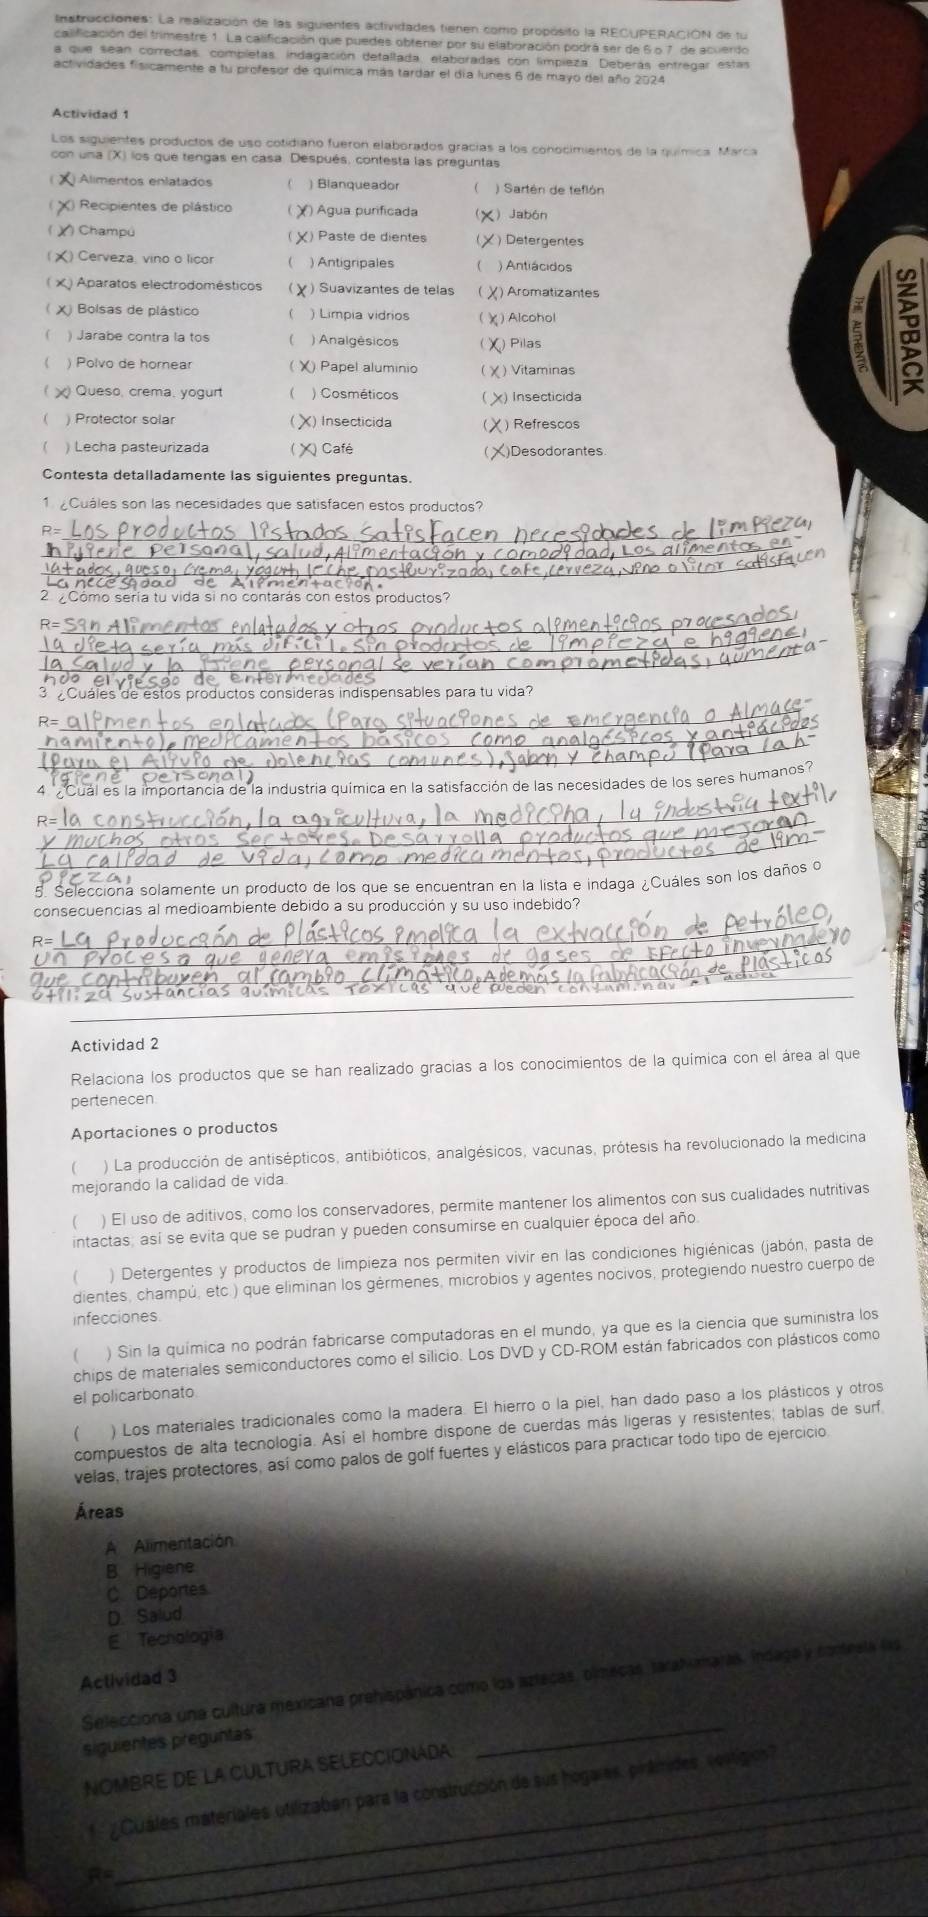 Instrucciones: La realización de las siguientes actividades tienen como propósito la RECUPERACIÓN de tu
calificación del trimestre 1. La calificación que puedes obtener por su elaboración podrá ser de 6 o 7 de acuerdo
a que sean correctas, completas, indagación detallada, elaboradas con limpieza. Deberás entregar estas
actividades físicamente a tu profesor de química más tardar el día lunes 6 de mayo del año 2024
Actividad 1
Los siguientes productos de uso cotidiano fueron elaborados gracias a los conocimientos de la química. Marca
con una (X) los que tengas en casa. Después, contesta las preguntas
(X) Alimentos enlatados ( ) Blanqueador ( ) Sartén de teflón
(X) Recipientes de plástico (X) Agua purificada (X) Jabón
(X) Champú (X) Paste de dientes (X) Detergentes
(X) Cerveza, vino o licor ( ) Antigripales ( ) Antiácidos
(X) Aparatos electrodomésticos (X) Suavizantes de telas (X) Aromatizantes
(X) Bolsas de plástico ( ) Limpia vidrios (X) Alcohol
( ) Jarabe contra la tos ( ) Analgésicos (X) Pilas
( ) Polvo de hornear (X) Papel aluminio (X) Vitaminas
(X) Queso, crema, yogurt ( ) Cosméticos (X) Insecticida
( ) Protector solar (X) Insecticida (X) Refrescos
( ) Lecha pasteurizada (X) Café (X)Desodorantes.
Contesta detalladamente las siguientes preguntas.
1. ¿Cuáles son las necesidades que satisfacen estos productos?
R= Los productos listados satisfacen necesidades de limpieza,
higiene personal, salud, Alimentación y comodidad, Los alimentos en-
latados, queso, crema, yogurt, leche pasteurizada, cafe, cerveza, vino o licor satisfacen
La necesidad de Alimentación.
2. ¿Cómo sería tu vida si no contarás con estos productos?
R= Sin Alimentos enlatados y otros productos alimenticios procesados,
la dieta sería más difícil. Sin productos de limpieza e higiene,
la salud y la igiene personal se verían comprometidas, aumenta-
ndo el riesgo de enfermedades
3. ¿Cuáles de estos productos consideras indispensables para tu vida?
R= alimentos enlatados (Para situaciones de emergencia o Almace-
namiento), medicamentos básicos como analgésicos y antiácidos
(para el Alivio de dolencias comunes), Jabon y champú (Para la h-
igiene personal)
4. ¿Cuál es la importancia de la industria química en la satisfacción de las necesidades de los seres humanos?
R= la construcción, la agricultura, la medicina, la industria textil,
y muchos otros sectores. Desarrolla productos que mejoran
La calidad de vida, como medicamentos, productos de lim-
pieza,
5. Selecciona solamente un producto de los que se encuentran en la lista e indaga ¿Cuáles son los daños o
consecuencias al medioambiente debido a su producción y su uso indebido?
R= La producción de plásticos implica la extracción de petróleo,
un proceso que genera emisiones de gases de Efecto invernadero
que contribuyen al cambio climático. Ademas la fabricación de plásticos
utiliza sustancias químicas Toxicas que pueden contaminar
Actividad 2
Relaciona los productos que se han realizado gracias a los conocimientos de la química con el área al que
pertenecen.
Aportaciones o productos
( ) La producción de antisépticos, antibióticos, analgésicos, vacunas, prótesis ha revolucionado la medicina
mejorando la calidad de vida.
( ) El uso de aditivos, como los conservadores, permite mantener los alimentos con sus cualidades nutritivas
intactas; así se evita que se pudran y pueden consumirse en cualquier época del año.
( ) Detergentes y productos de limpieza nos permiten vivir en las condiciones higiénicas (jabón, pasta de
dientes, champú, etc.) que eliminan los gérmenes, microbios y agentes nocivos, protegiendo nuestro cuerpo de
infecciones.
( ) Sin la química no podrán fabricarse computadoras en el mundo, ya que es la ciencia que suministra los
chips de materiales semiconductores como el silicio. Los DVD y CD-ROM están fabricados con plásticos como
el policarbonato.
( ) Los materiales tradicionales como la madera. El hierro o la piel, han dado paso a los plásticos y otros
compuestos de alta tecnología. Así el hombre dispone de cuerdas más ligeras y resistentes; tablas de surf,
velas, trajes protectores, así como palos de golf fuertes y elásticos para practicar todo tipo de ejercicio.
Áreas
A. Alimentación.
B. Higiene
C. Deportes.
D. Salud
E. Tecnología
Actividad 3
Selecciona una cultura mexicana prehispánica como los aztecas, olmecas, tarahumaras, indaga y contesta las
siguientes preguntas:
NOMBRE DE LA CULTURA SELECCIONADA:
1. ¿Cuáles materiales utilizaban para la construcción de sus hogares, pirámides, vestigios?
R=
SNAPBACK
THE AUTHENTIC